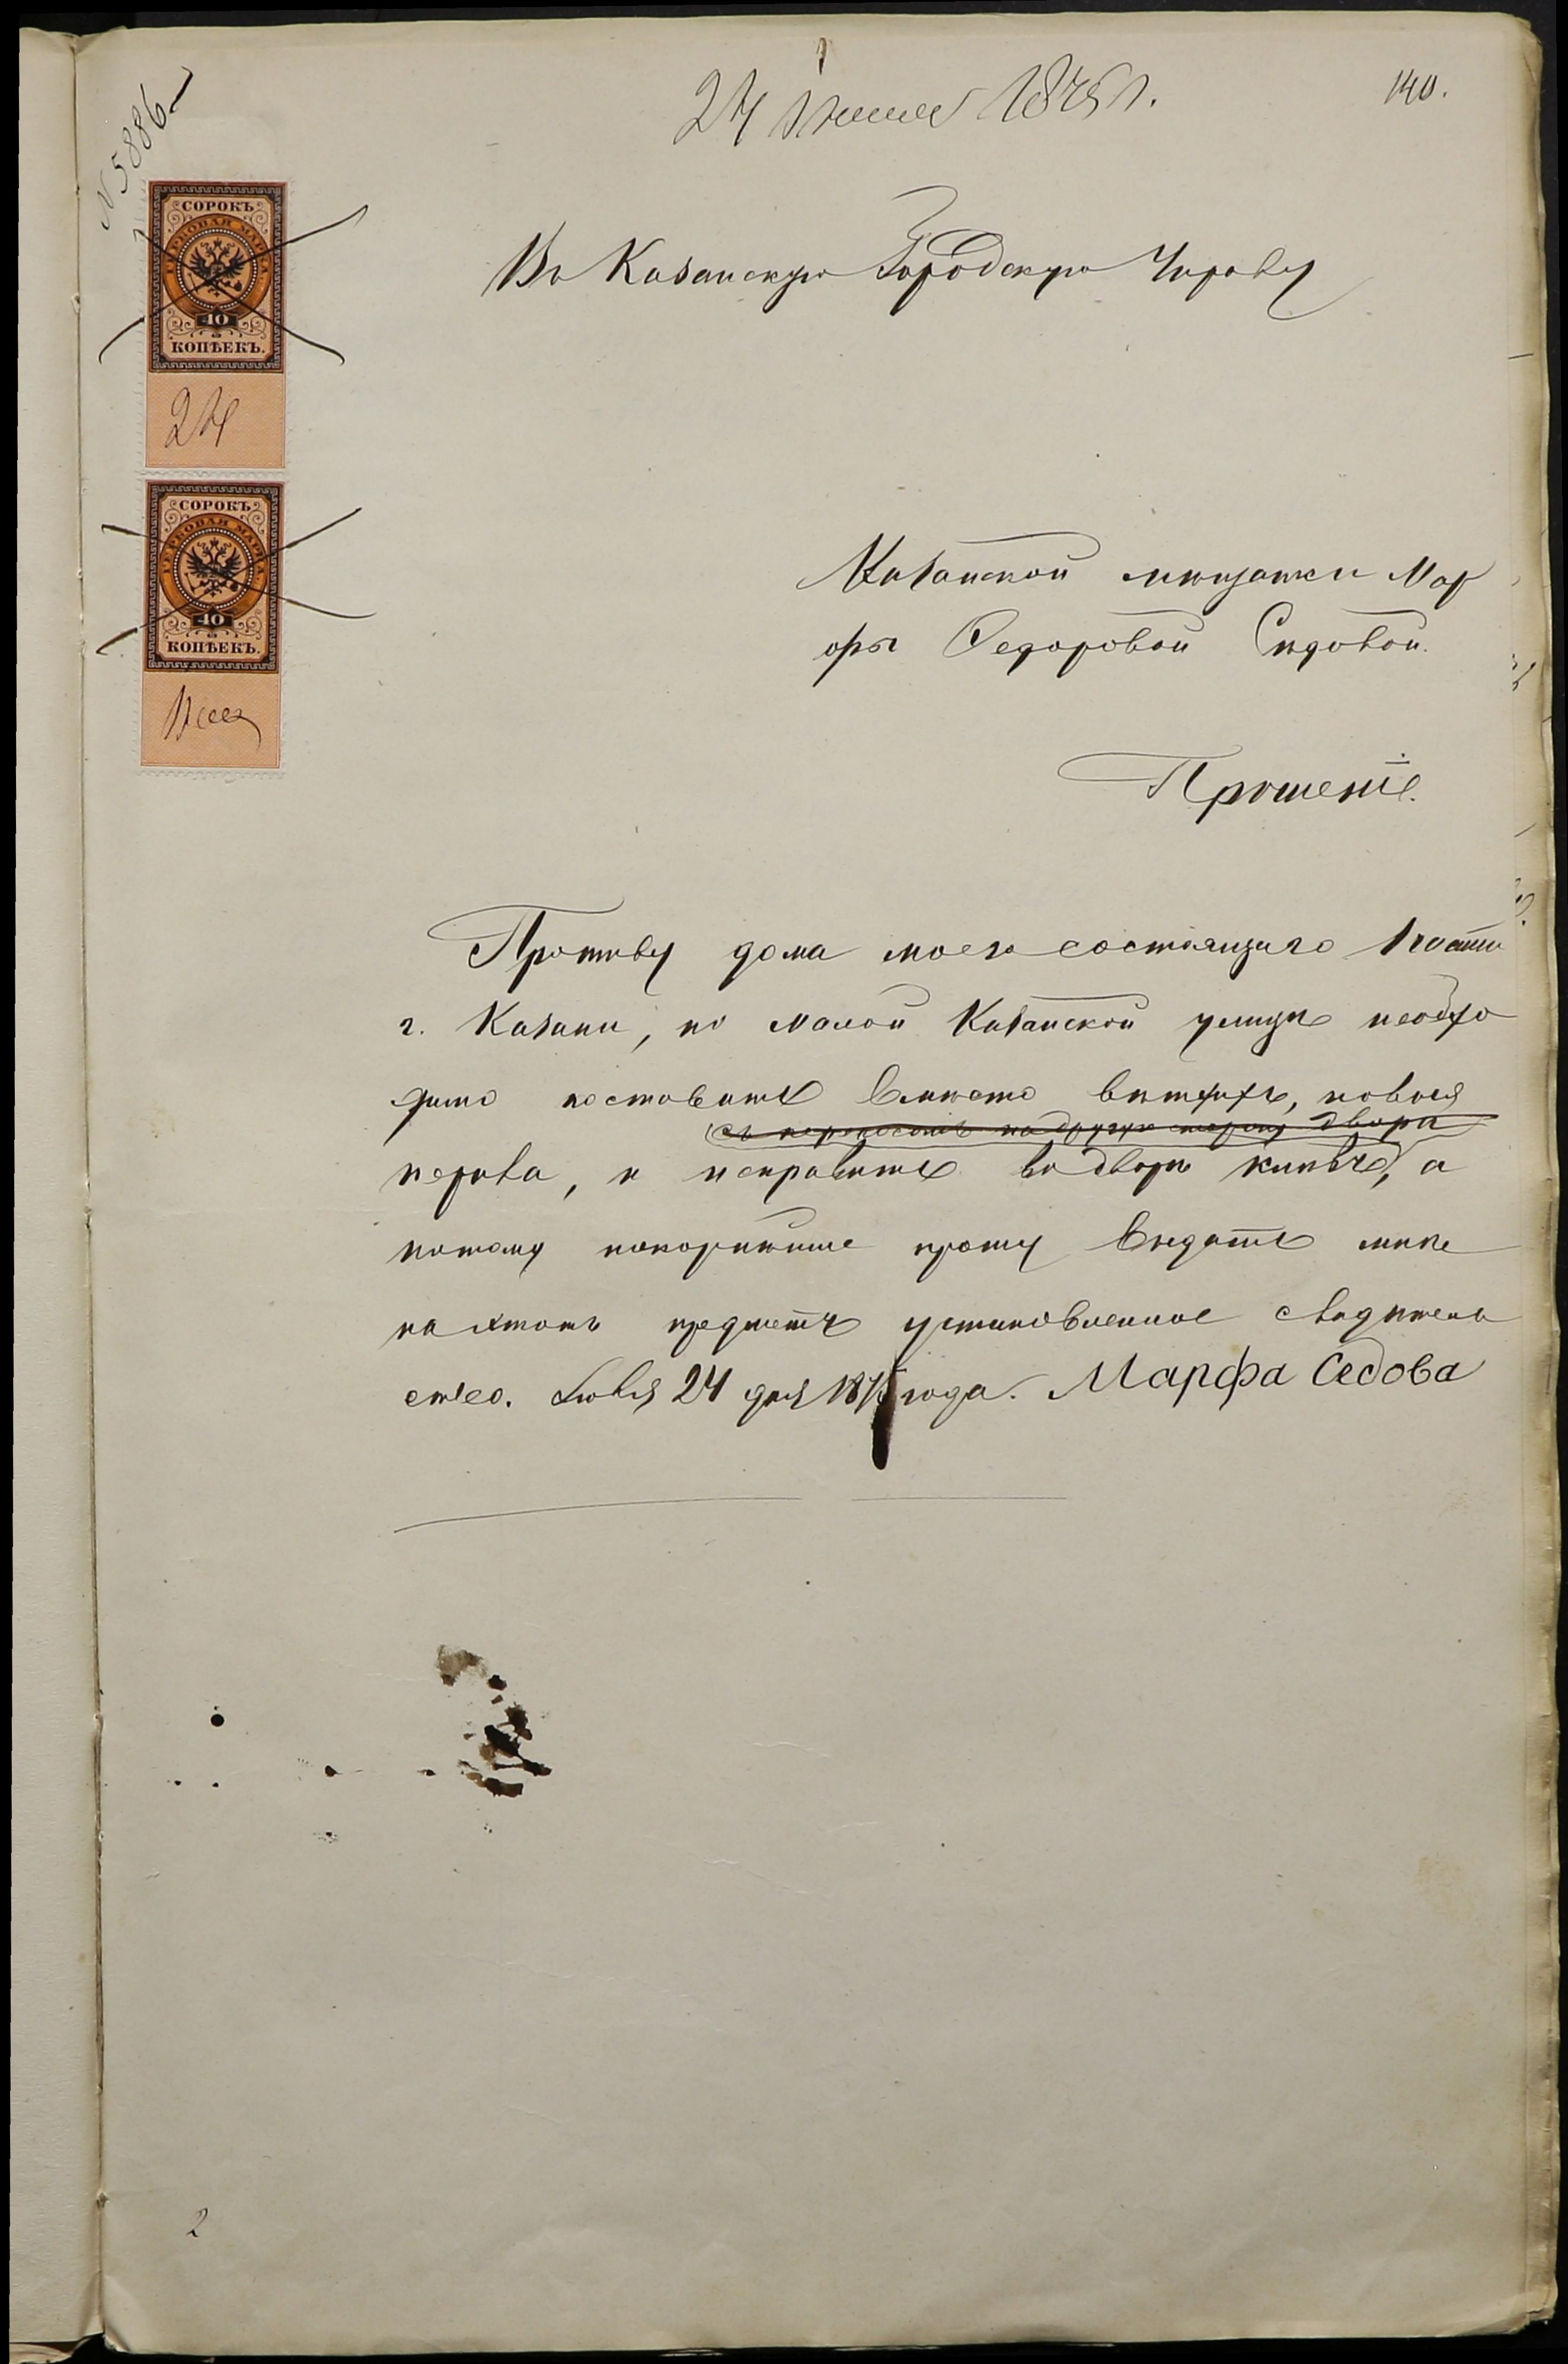 24 Июня 1875 г.
140.
N 5886
СОРОКЪ
ГЕРБОВАЯ МАРКА
40
КОПѢЕКЪ.
24
СОРОКЪ
ГЕРБОВАЯ МАРКА
40
КОПѢЕКЪ.
Въ Казанскую Городскую Управу
Казанской мѣщанки Мар
фы Федоровой Сѣдовой.
Прошеніе.
Противу дома моего состоящаго 1 части
г. Казани, по Малой Казанской улицѣ необхо
димо поставить вмѣсто ветхихъ, новыя
съ переносомъ на другую сторону двора
перила, и исправить во дворѣ, а
потому покорнѣйше прошу выдать мнѣ
на этотъ предметъ установленное свидѣтель
ство. 24 дня 1875 года. Марфа Седова
2